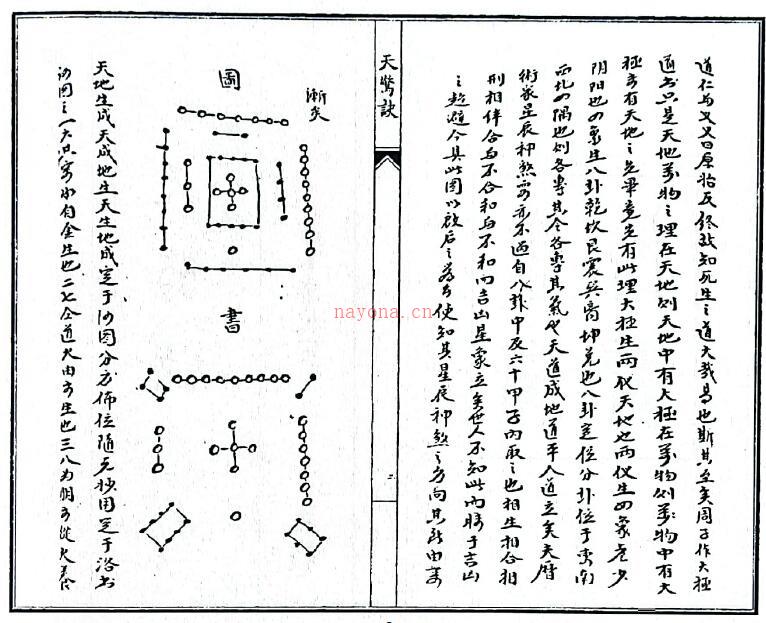 道仁与义又曰原始反终故知死生之道大哉易也斯其至矣周子作大極
道书只是天地萬物之理在天地则天地中有太極在萬物则萬物中有太
極未有天地之先畢竟先有此理太極生兩仪天地也兩仪生四象老少
阴阳也四象生八卦乾坎艮震巽离坤兑也八卦定位分卦位于東南
西北四隅也则各專其令各專其氣也天道成地道平人道立矣夫曆
術家星辰神煞亦不過自八卦中及六十甲子内取之也相生相合相
刑相伴合与不合和与不和而吉凶星象立矣世人不知此而于吉凶
之趋避今具此图以啟后之者使知其星辰神煞之方向其所由来
天驚訣
二
漸矣
圖
書
天地生成天成地生天生地成定于河图分方佈位随用定于洛书
河图之一六共宗水自金生也二七合道火由木生也三八为朋木從火養
nayona.cn